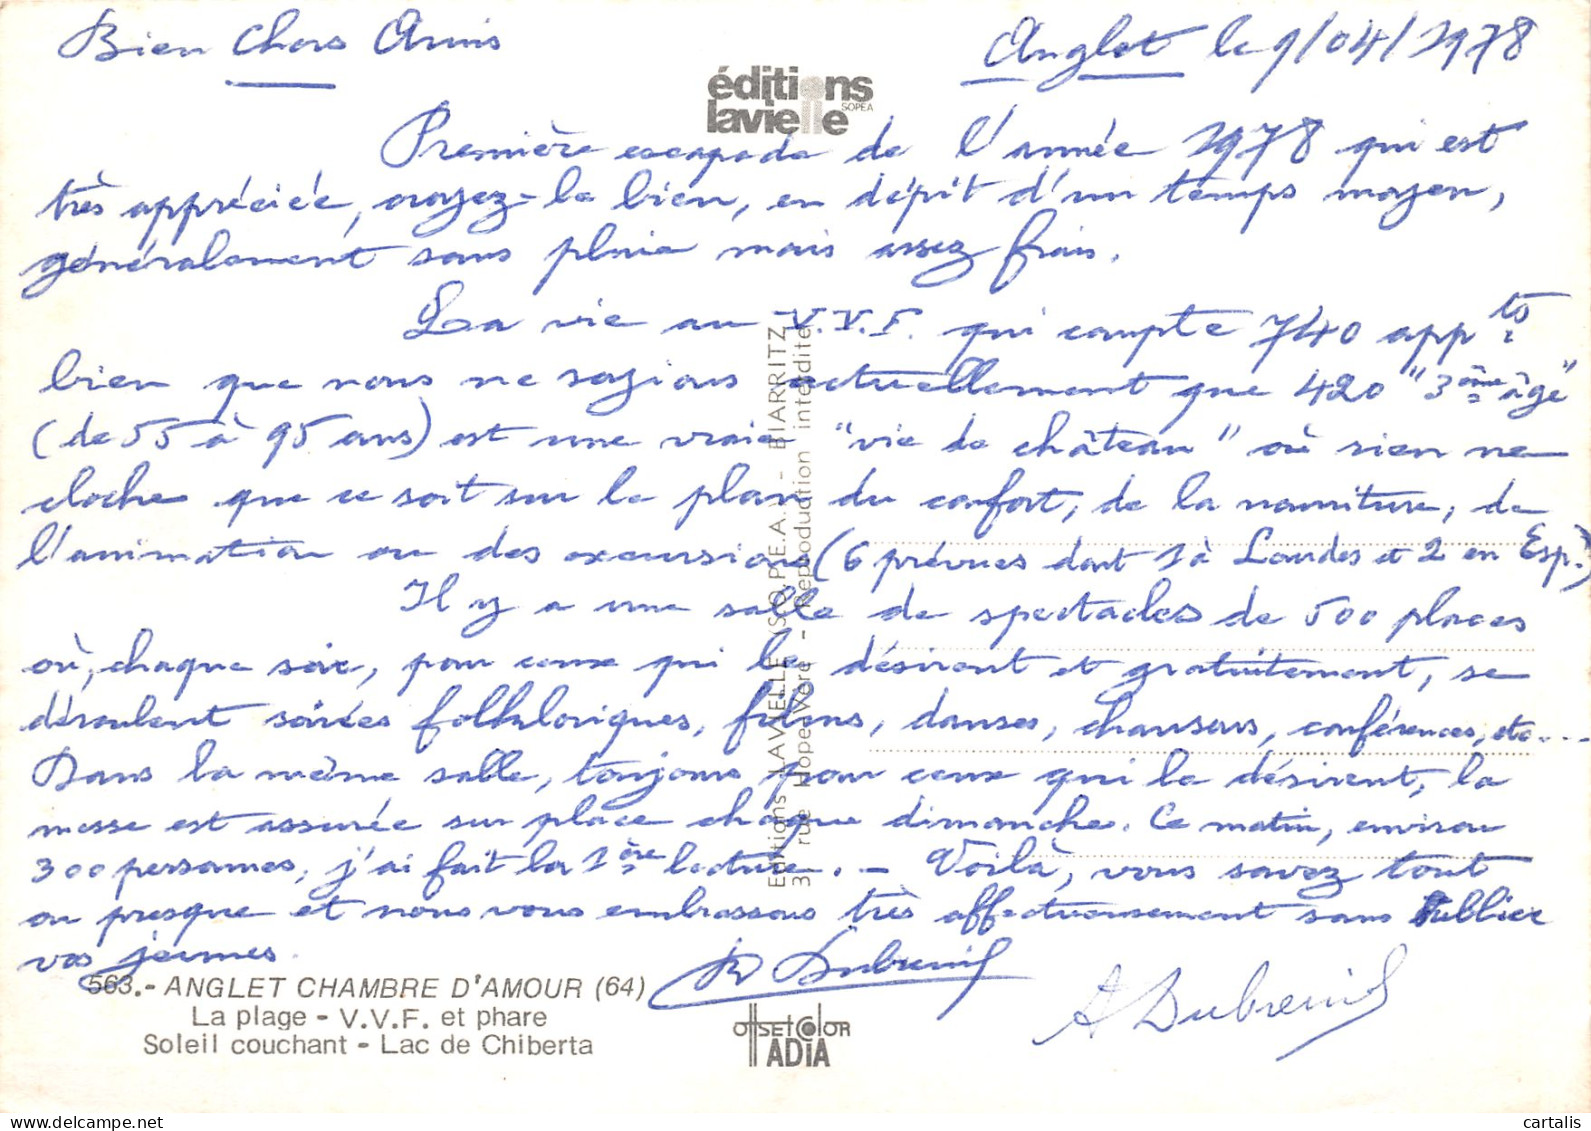 Bien Chers Amis
Anglet le 9/04/1978
éditions
lavielle
SOPEA
Première escapade de l'année 1978 qui est
très appréciée, croyez-le bien, en dépit d'un temps moyen,
généralement sans pluie mais assez frais.
La vie au V.V.F. qui compte 740 appts
bien que nous ne soyions actuellement que 420 "3ème âge"
(de 55 à 95 ans) est une vraie "vie de château" où rien ne
cloche que ce soit sur le plan du confort, de la nourriture, de
l'animation ou des excursions (6 prévues dont 1 à Lourdes et 2 en Esp.)
Il y a une salle de spectacles de 500 places
où, chaque soir, pour ceux qui le désirent et gratuitement, se
déroulent soirées folkloriques, films, danses, chansons, conférences, etc....
Dans la même salle, toujours pour ceux qui le désirent, la
messe est assurée sur place chaque dimanche. Ce matin, environ
300 personnes, j'ai fait la 1ère lecture. - Voilà, vous savez tout
ou presque et nous vous embrassons très affectueusement sans oublier
vos jeunes.
Dubreuil
A Dubreuil
Editions LAVIELLE (S.O.P.E.A.) - BIARRITZ
31 rue Mope Vère - Reproduction interdite
563.- ANGLET CHAMBRE D'AMOUR (64)
La plage - V.V.F. et phare
Soleil couchant - Lac de Chiberta
OFFSET COLOR
ADIA
cartalis
www.delcampe.net